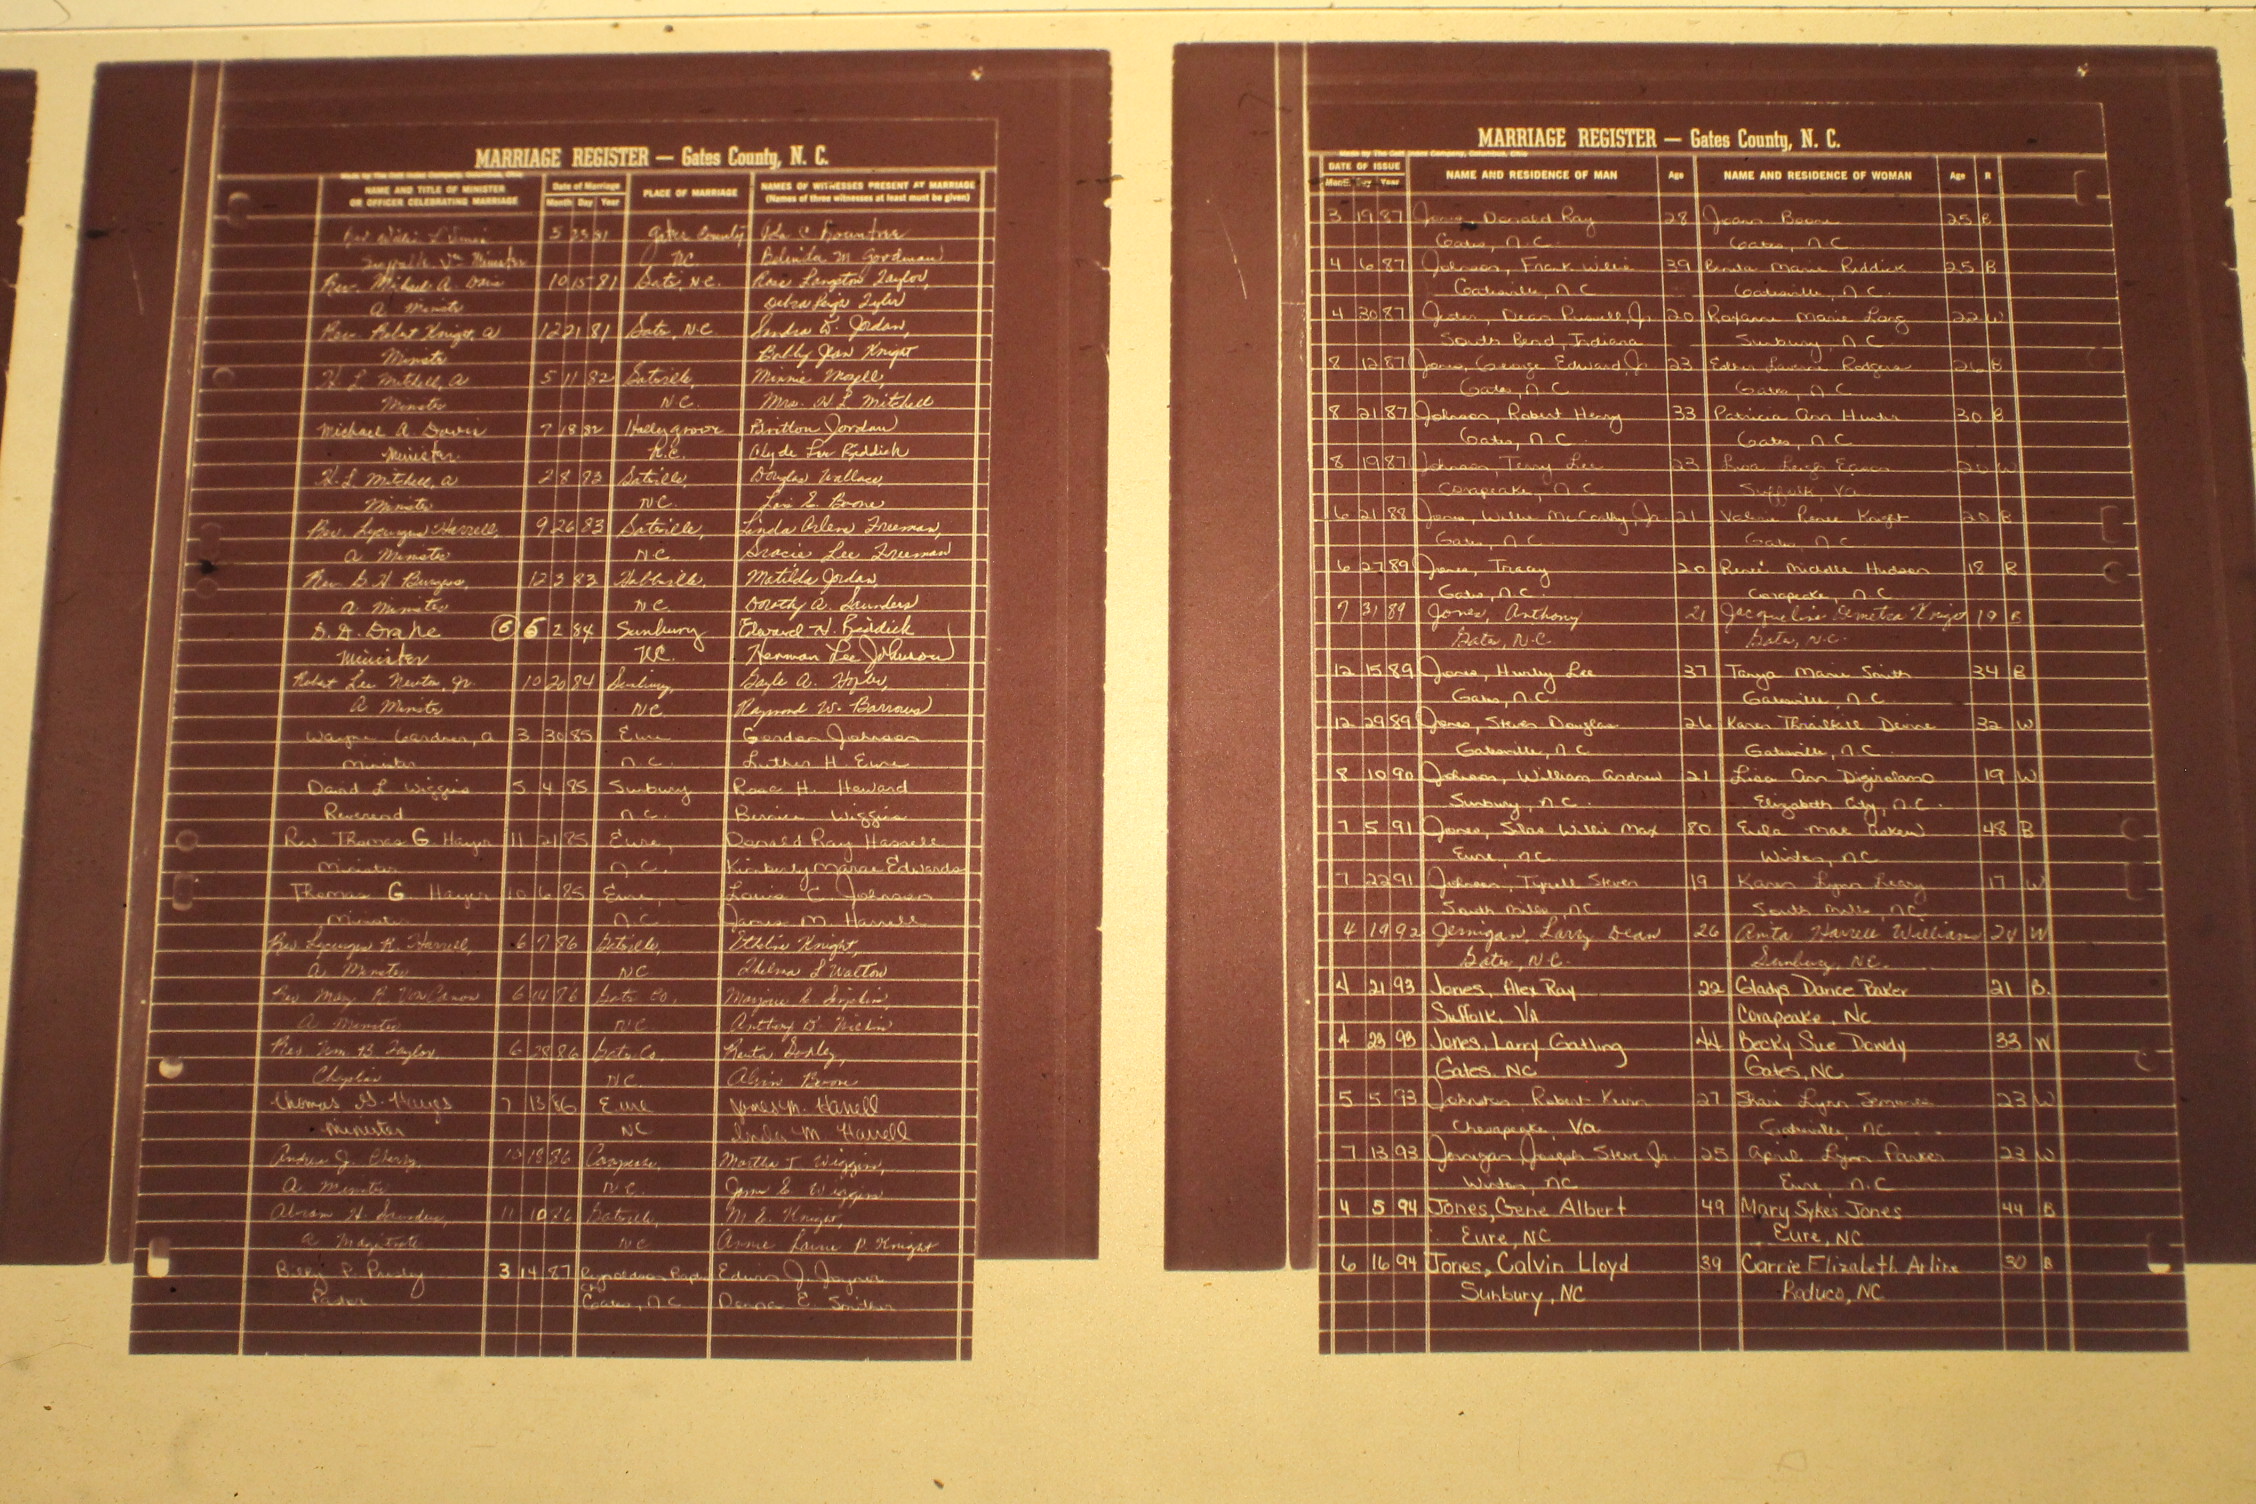 MARRIAGE REGISTER — Gates County, N. C.
NAME AND TITLE OF MINISTER OR OFFICER CELEBRATING MARRIAGE Date of Marriage Month Day Year PLACE OF MARRIAGE NAMES OF WITNESSES PRESENT AT MARRIAGE (Names of three witnesses at least must be given)
5 81 Gates County Ada C Rountree
Suffolk Va Minister N.C. Belinda M Goodman
Rev. Michael A. Davis 10 15 81 Gates, N.C. Rosie Langston Taylor,
a Minister Debra Paige Tyler
Rev. Robert Knight, a 12 21 81 Gates, N.C. Sandra D. Jordan,
Minister Bobby Jean Knight
H L Mitchell, a 5 11 82 Gatesville, Minnie
Minister N.C. Mrs. H L Mitchell
Michael A. Davis 7 18 82 Holly grove Britton Jordan
Minister N.C. Clyde Riddick
H. L. Mitchell, a 2 8 83 Gatesville, Douglas Wallace,
Minister N.C. Lois E. Boone
Rev. Harrell, 9 26 83 Gatesville, Linda Arlene Freeman,
a Minister N.C. Gracie Lee Freeman
Rev. G H Burgess, 12 3 83 Hobbsville, Matilda Jordan,
a Minister N.C. Dorothy A. Saunders
D. D. Drake 6 6 2 84 Sunbury Edward H. Riddick
Minister N.C. Herman Lee Johnson
Robert Lee Newton, Jr. 10 20 84 Sunbury, Gayle A.
A Minister N.C. Raymond W. Barrows
Wayne Gardner, a 3 30 85 Eure Gordon Johnson
minister N.C. Luther H. Eure
David L Wiggins 5 4 85 Sunbury Rosa H. Howard
Reverend N.C. Bernice Wiggins
Rev Thomas G Hayes 11 21 85 Eure, Donald Ray Hassell
Minister N.C. Kimberly Marae Edwards
Thomas G. Hayes 10 6 85 Eure, Louis C. Johnson
Minister N.C. James M. Harrell
Rev. R. Harrell, 6 7 86 Gatesville, Knight,
a Minister NC Thelma L Walton
Rev. 6 14 86 Gates Co. Marjorie E.
a Minister N.C. Anthony D.
Rev Wm. B. Taylor, 6 28 86 Gates Co.
Chaplain N.C. Alvin Boone
Thomas G. Hayes 7 13 86 Eure James M. Harrell
Minister NC Linda M Harrell
Andrew J. Cherry, 10 18 86 Corapeake, Martha T. Wiggins,
a Minister N.C. E. Wiggins
Abram H. Saunders, 11 10 86 Gatesville, M. E. Knight,
a Magistrate NC Annie P. Knight
Billy P. 3 14 87 Reynoldson Edwin J. Joyner
Pastor Gates, N.C. E. Smither
MARRIAGE REGISTER — Gates County, N. C.
DATE OF ISSUE Month Day Year NAME AND RESIDENCE OF MAN Age NAME AND RESIDENCE OF WOMAN Age R
3 19 87 Jones, Donald Ray 28 Joann Boone 25 B
Gates, N.C. Gates, N.C.
4 6 87 Johnson, Frank Willie 39 Marie Riddick 25 B
Gatesville, N.C. Gatesville, N.C.
4 30 87 Jester, Dean Jr. 20 Roxanne Marie Long 22 W
South Bend, Indiana Sunbury, N.C.
8 12 87 Jones, George Edward, Jr 23 Esther Rodgers 26 B
Gates, N.C. Gates, N.C.
8 21 87 Johnson, Robert Henry 33 Patricia Ann Hunter 30 B
Gates, N.C. Gates, N.C.
8 19 87 Johnson, Terry Lee 23 Lisa Leigh Eason 20 W
Corapeake, N.C. Suffolk, Va.
6 21 88 Jones, Willie McCoy, Jr 21 Valerie Renee Knight 20 B
Gates, N.C. Gates, N.C.
6 27 89 Jones, Tracey 20 Renee Michelle Hudson 18 B
Gates, N.C. Corapeake, N.C.
7 31 89 Jones, Anthony 21 Jacqueline Demetra Knight 19 B
Gates, N.C. Gates, N.C.
12 15 89 Jones, Hurley Lee 37 Tanya Marie Smith 34 B
Gates, N.C. Gatesville, N.C.
12 29 89 Jones, Steven Douglas 26 Karen Thrailkill Devine 32 W
Gatesville, N.C. Gatesville, N.C.
8 10 90 Johnson, William Andrew 21 Lisa Ann Digirolamo 19 W
Sunbury, N.C. Elizabeth City, N.C.
7 5 91 Jones, Silas Willie Max 80 Eula Mae Askew 48 B
Eure, NC Winton, NC
7 22 91 Johnson, Tyrell Steven 19 Karen Lynn Leary 17 W
South Mills, NC South Mills, NC
4 19 92 Jernigan, Larry Dean 26 Anita Harrell Williams 24 W
Gates, N.C. Sunbury, N.C.
4 21 93 Jones, Alex Ray 22 Gladys Dance Baker 21 B.
Suffolk, VA Corapeake, NC
4 23 93 Jones, Larry Gatling 44 Becky Sue Dowdy 33 W
Gates, NC Gates, NC
5 5 93 Johnston, Robert Kevin 27 Shari Lynn 23 W
Chesapeake, Va Gatesville, NC
7 13 93 Jernigan, Joseph Steve Jr. 25 April Lynn Parker 23 W
Winton, NC Eure, N.C
4 5 94 Jones, Gene Albert 49 Mary Sykes Jones 44 B
Eure, NC Eure, NC
6 16 94 Jones, Calvin Lloyd 39 Carrie Elizabeth Arline 30 B
Sunbury, NC Roduco, NC